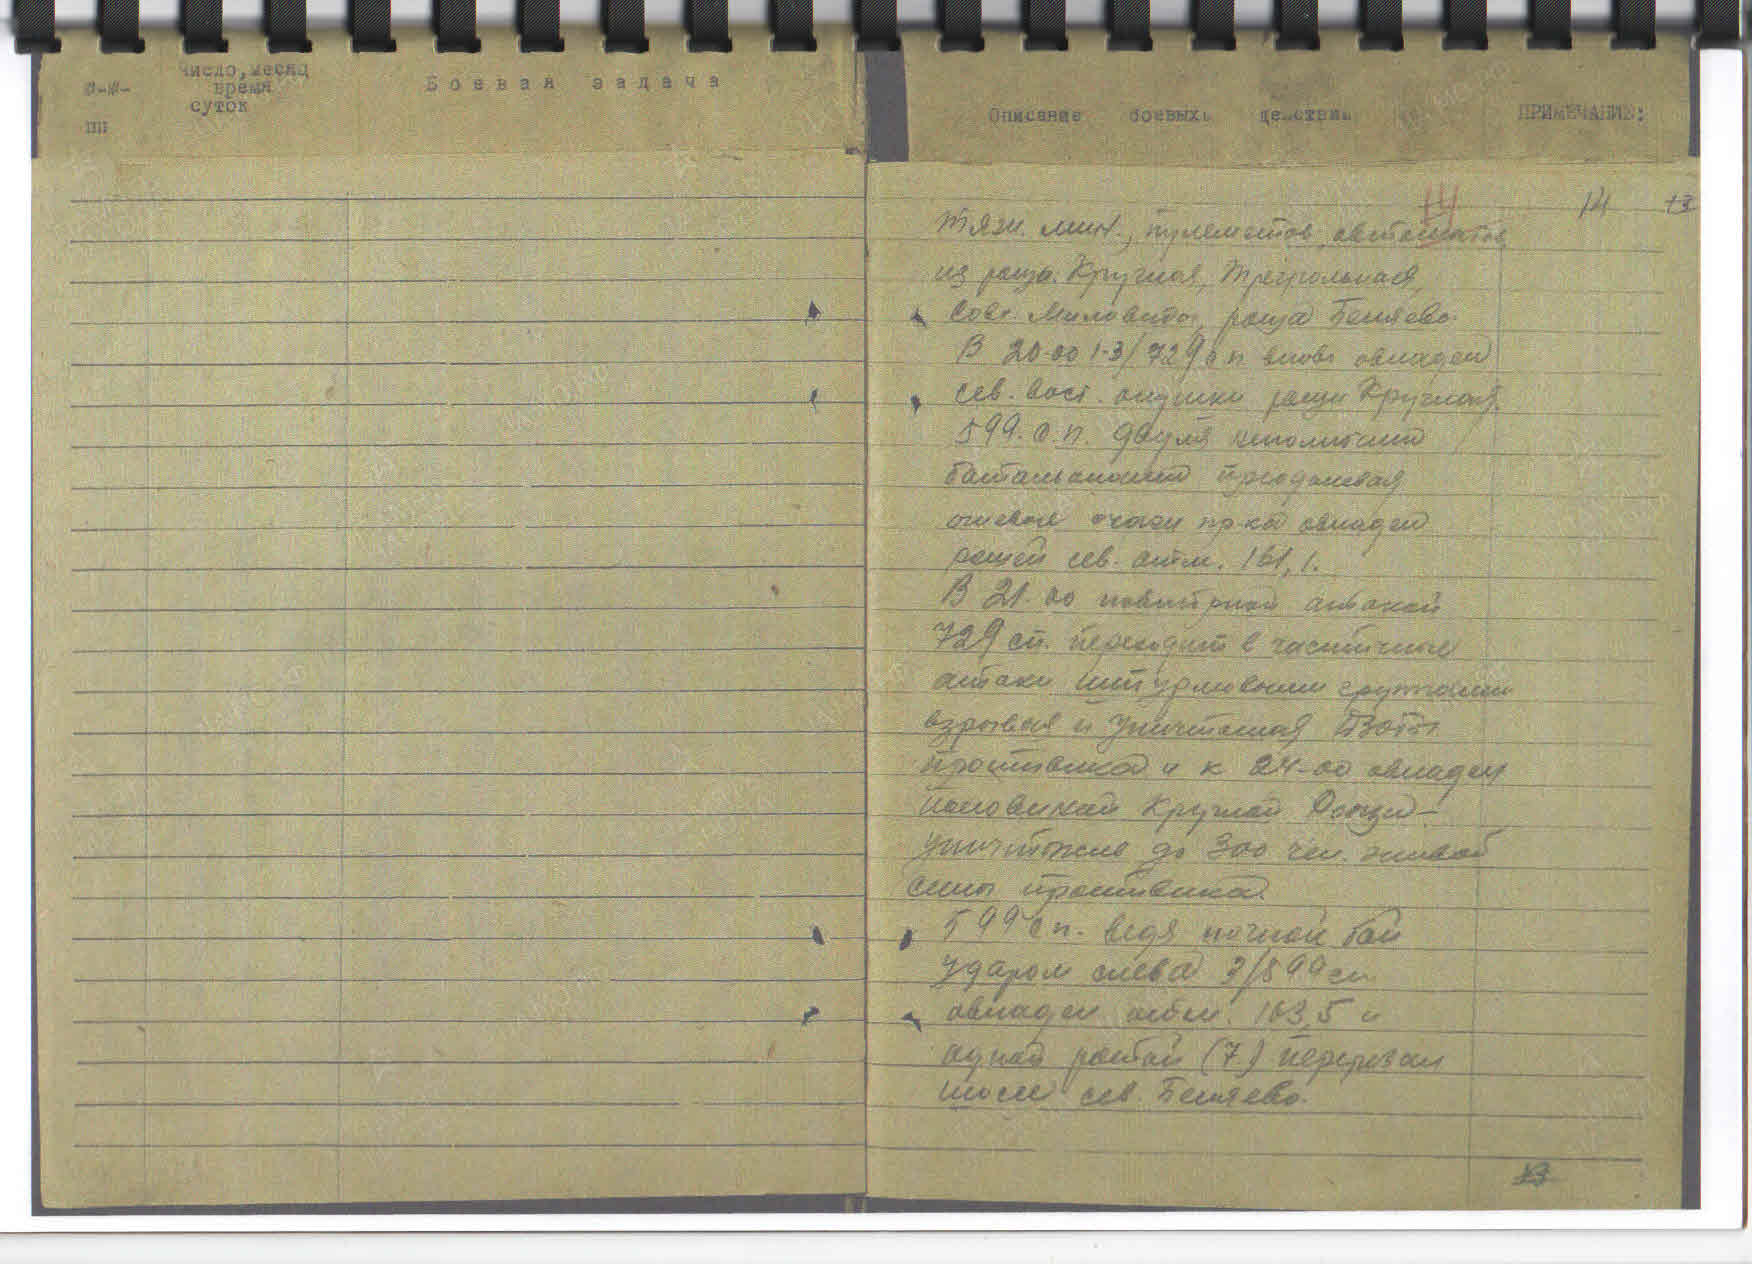 №-№-
пп
число, месяц
время
суток
Боевая задача
Описание боевых действий
ПРИМЕЧАНИЕ:
14
14
13
тяж. мин., пулеметов, автоматов
из рощи Круглая, Треугольная,
совх. Миловидо, роща Беляево.
В 20-00 1-3/729 с.п. вновь овладел
сев. вост. опушки рощи Круглая.
599. с.п. двумя
батальонами преодолевая
огневые очаги пр-ка овладел
рощей сев. отм. 161,1.
В 21.00 повторной атакой
729 сп. переходит в частичные
атаки штурмовыми группами
взрывая и уничтожая ДЗОТы
противника и к 24-00 овладел
половиной Круглой Рощи -
уничтожив до 300 чел. живой
силы противника.
599 сп. ведя ночной бой
ударом слева 3/599 сп
овладел отм. 163,5 и
одной ротой (7) перерезал
шоссе сев. Беляево.
13